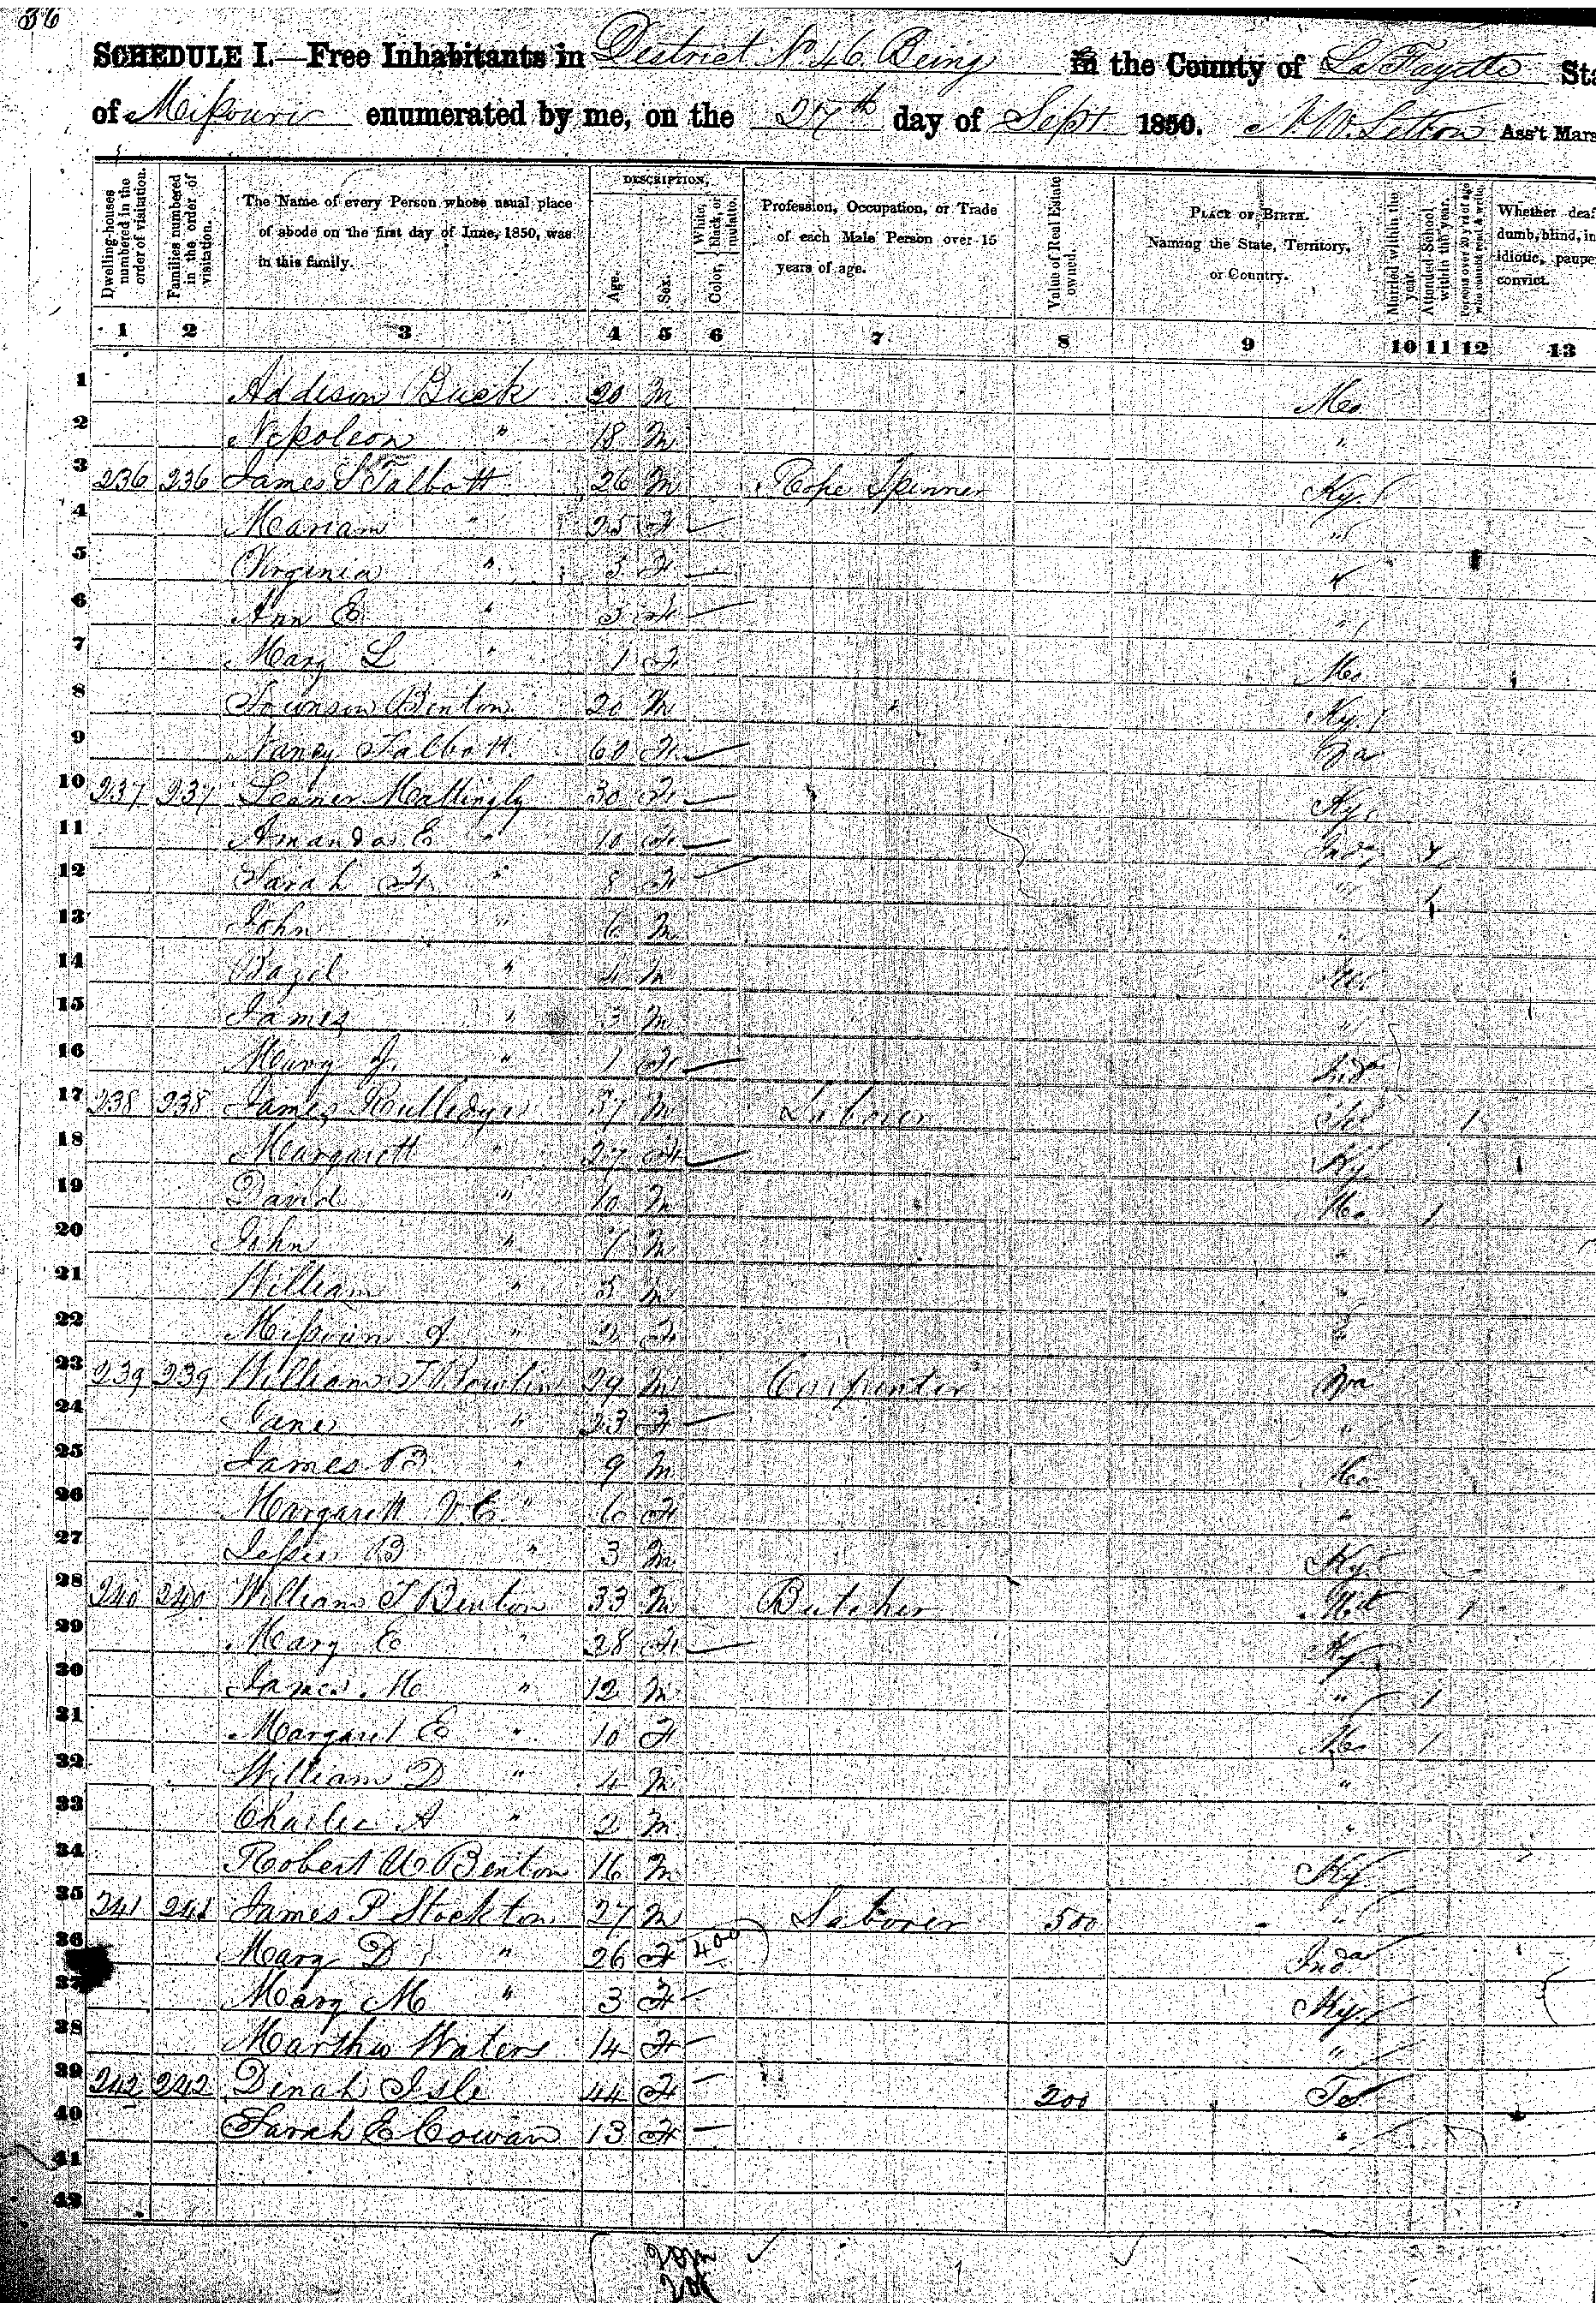 36
SCHEDULE I.—Free Inhabitants in District No 46 Being in the County of La Fayette Sta
of Missouri enumerated by me, on the 27th day of Sept 1850. Ass't Mars
Dwelling-houses numbered in the order of visitation.
Families numbered in the order of visitation.
The Name of every Person whose usual place of abode on the first day of June, 1850, was in this family.
DESCRIPTION,
Age.
Sex.
Color, White, black, or mulatto.
Profession, Occupation, or Trade of each Male Person over 15 years of age.
Value of Real Estate owned.
PLACE OF BIRTH. Naming the State, Territory, or Country.
Married within the year.
Attended School within the year.
Persons over 20 y'rs of age who cannot read & write.
Whether deaf dumb, blind, in idiotic, paupe convict.
1 2 3 4 5 6 7 8 9 10 11 12 13
1 Addison Buck 20 M Mo
2 Nepoleon " 18 M "
3 236 236 James S Talbott 26 M Rope Spinner Ky
4 Mariam " 25 F "
5 Virginia " F "
6 Ann E " F "
7 Mary L " 1 F Mo
8 Benton 20 M " Ky
9 Nancy Talbott 60 F Va
10 237 237 Mattingly 30 F Ky
11 Amanda E " 10 F
12 Sarah F " 8 F "
13 John " 6 M "
14 Bazel " 4 M
15 James " 3 M "
16 Mary J. " 1 F Inda
17 238 238 James Rulledge 37 M Laborer 1
18 Margarett " 27 F Ky
19 David " 10 M Mo 1
20 John " 7 M "
21 William " 5 M "
22 " 2 F "
23 239 239 William T Bowlin 29 M Carpenter Va
24 Jane " 23 F "
25 James B " 9 M Mo
26 Margarett V. E. " 6 F "
27 Jessee B " 3 M Ky
28 240 240 William T Benton 33 M Butcher 1
29 Mary E " 28 F Ky
30 James M " 12 M " 1
31 Margaret E " 10 F Mo 1
32 William D " 4 M "
33 Charles A " 2 M "
34 Robert Benton 16 M Ky
35 241 241 James P Stockton 27 M Laborer 500 "
36 Mary D " 26 F 400 Inda
37 Mary M " 3 F Ky
38 Martha Waters 14 F "
39 242 242 Dinah Isle 44 F 200 Te
40 Sarah E Cowan 13 F "
41
42
20m